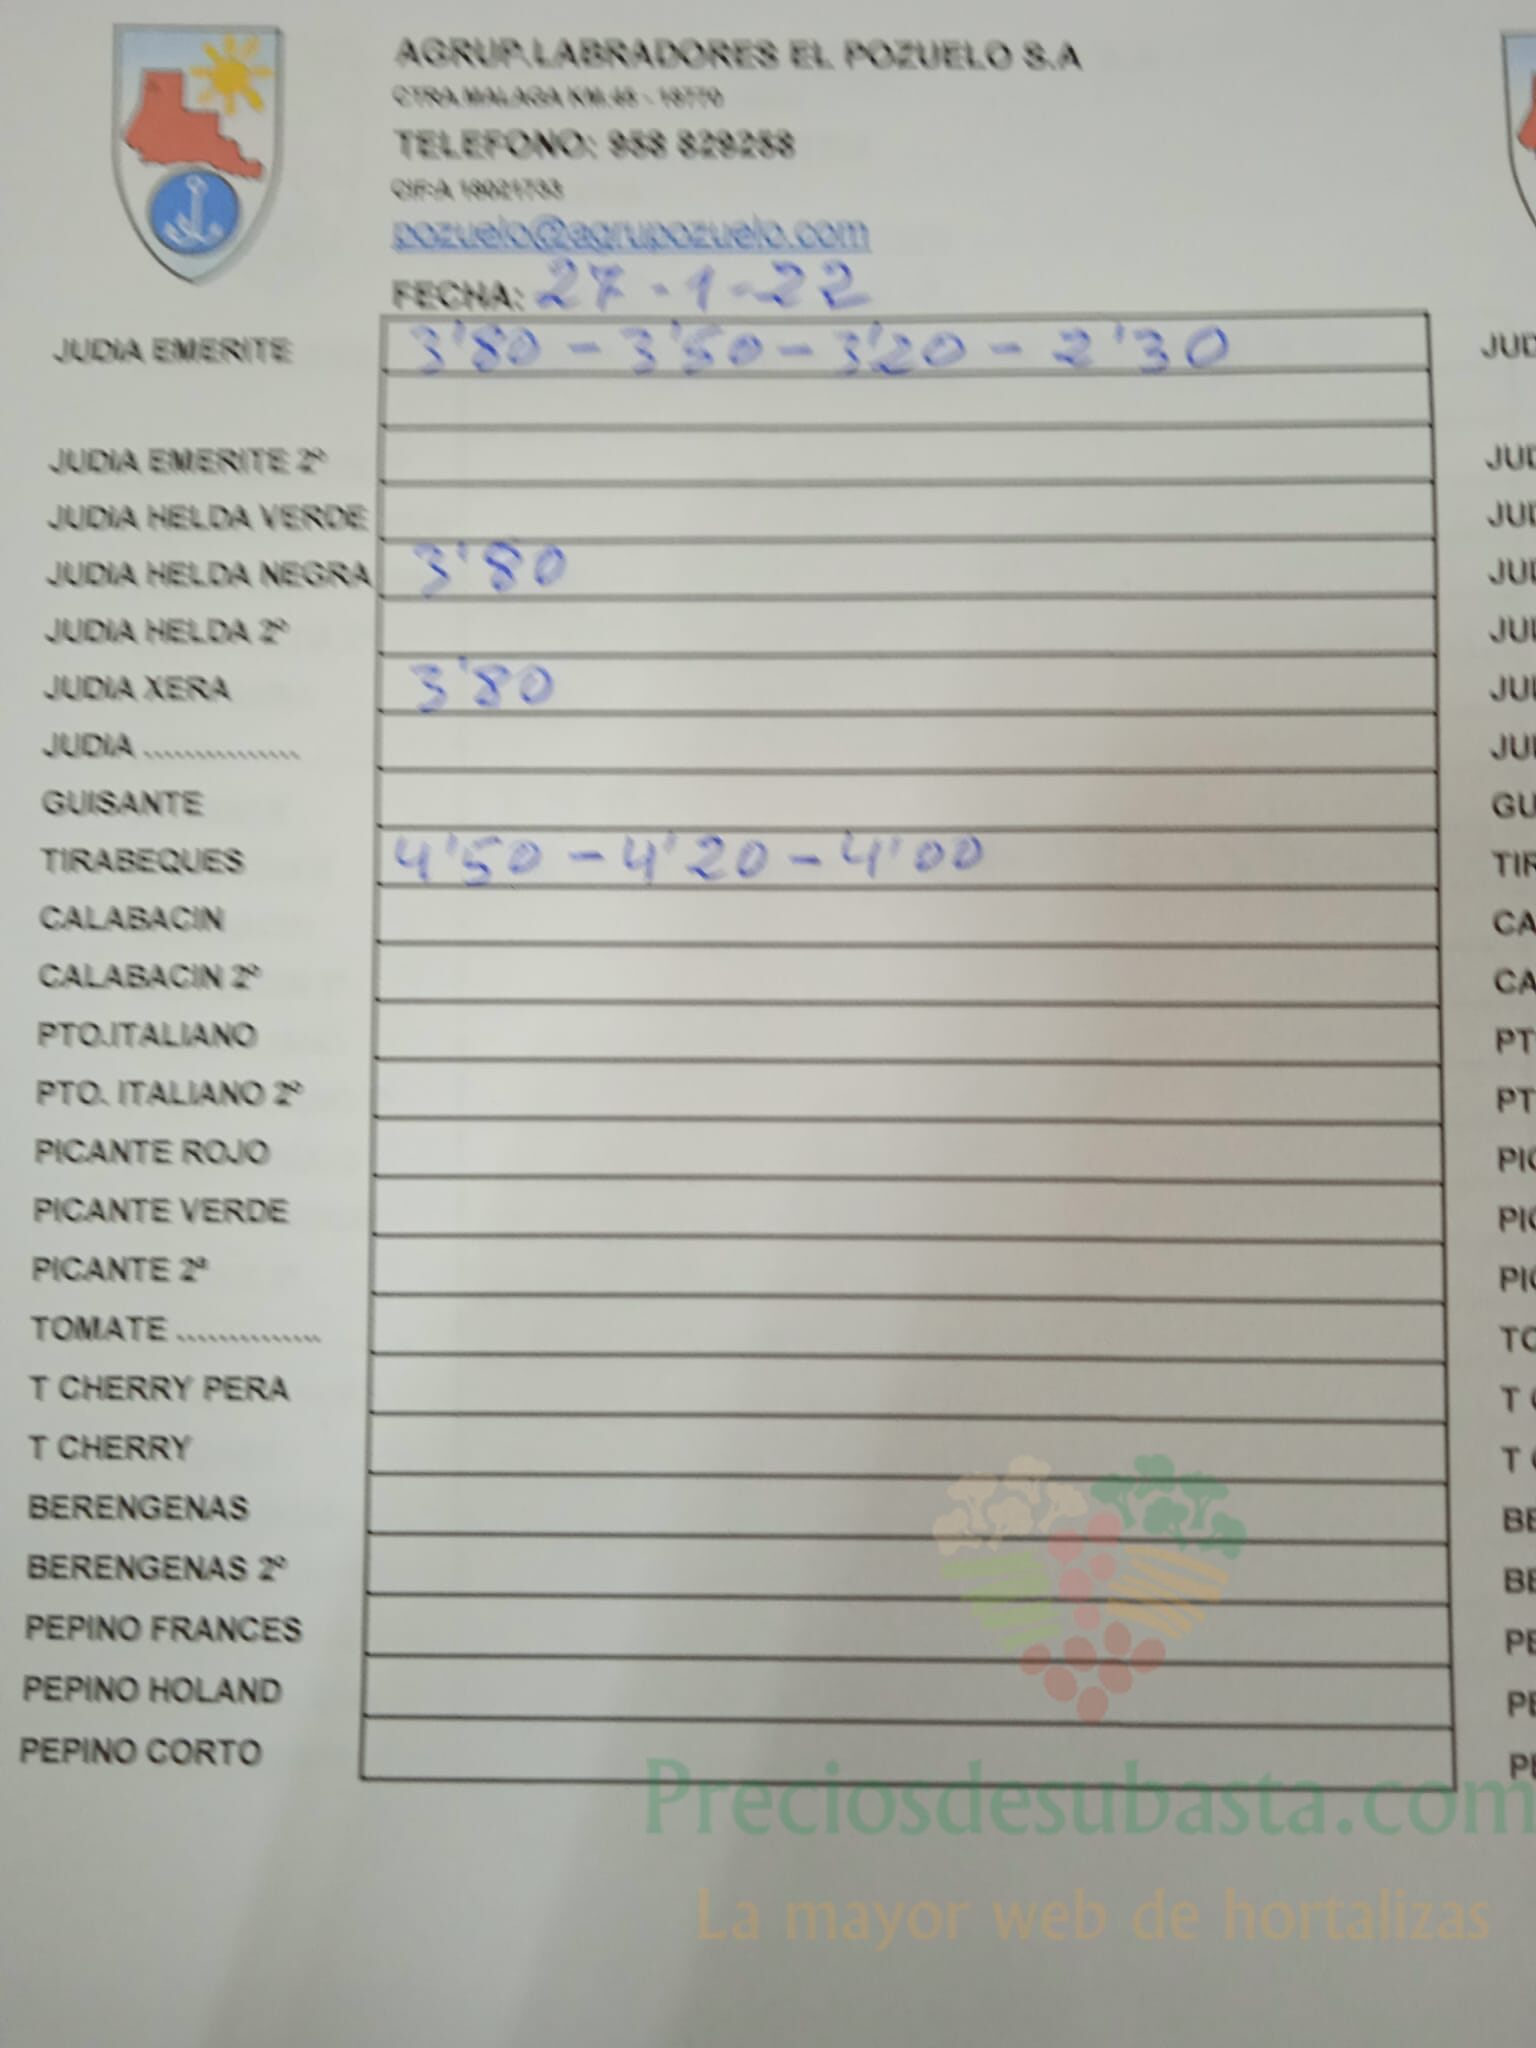 AGRUP.LABRADORES EL POZUELO S.A
CTRA.MALAGA KM.48 - 18770
TELEFONO: 958 829258
CIF:A 18021733
pozuelo@agrupozuelo.com
FECHA: 27-1-22
JUDIA EMERITE 3'80 - 3'50 - 3'20 - 2'30 JUD
JUDIA EMERITE 2º JUD
JUDIA HELDA VERDE JUD
JUDIA HELDA NEGRA 3'80 JUD
JUDIA HELDA 2º JUD
JUDIA XERA 3'80 JUD
JUDIA ............... JUD
GUISANTE GU
TIRABEQUES 4'50 - 4'20 - 4'00 TIR
CALABACIN CA
CALABACIN 2º CA
PTO.ITALIANO PT
PTO. ITALIANO 2º PT
PICANTE ROJO PIC
PICANTE VERDE PIC
PICANTE 2ª PIC
TOMATE .............. TO
T CHERRY PERA T C
T CHERRY T C
BERENGENAS BE
BERENGENAS 2º BE
PEPINO FRANCES PE
PEPINO HOLAND PE
PEPINO CORTO PE
Preciosdesubasta.com
La mayor web de hortalizas